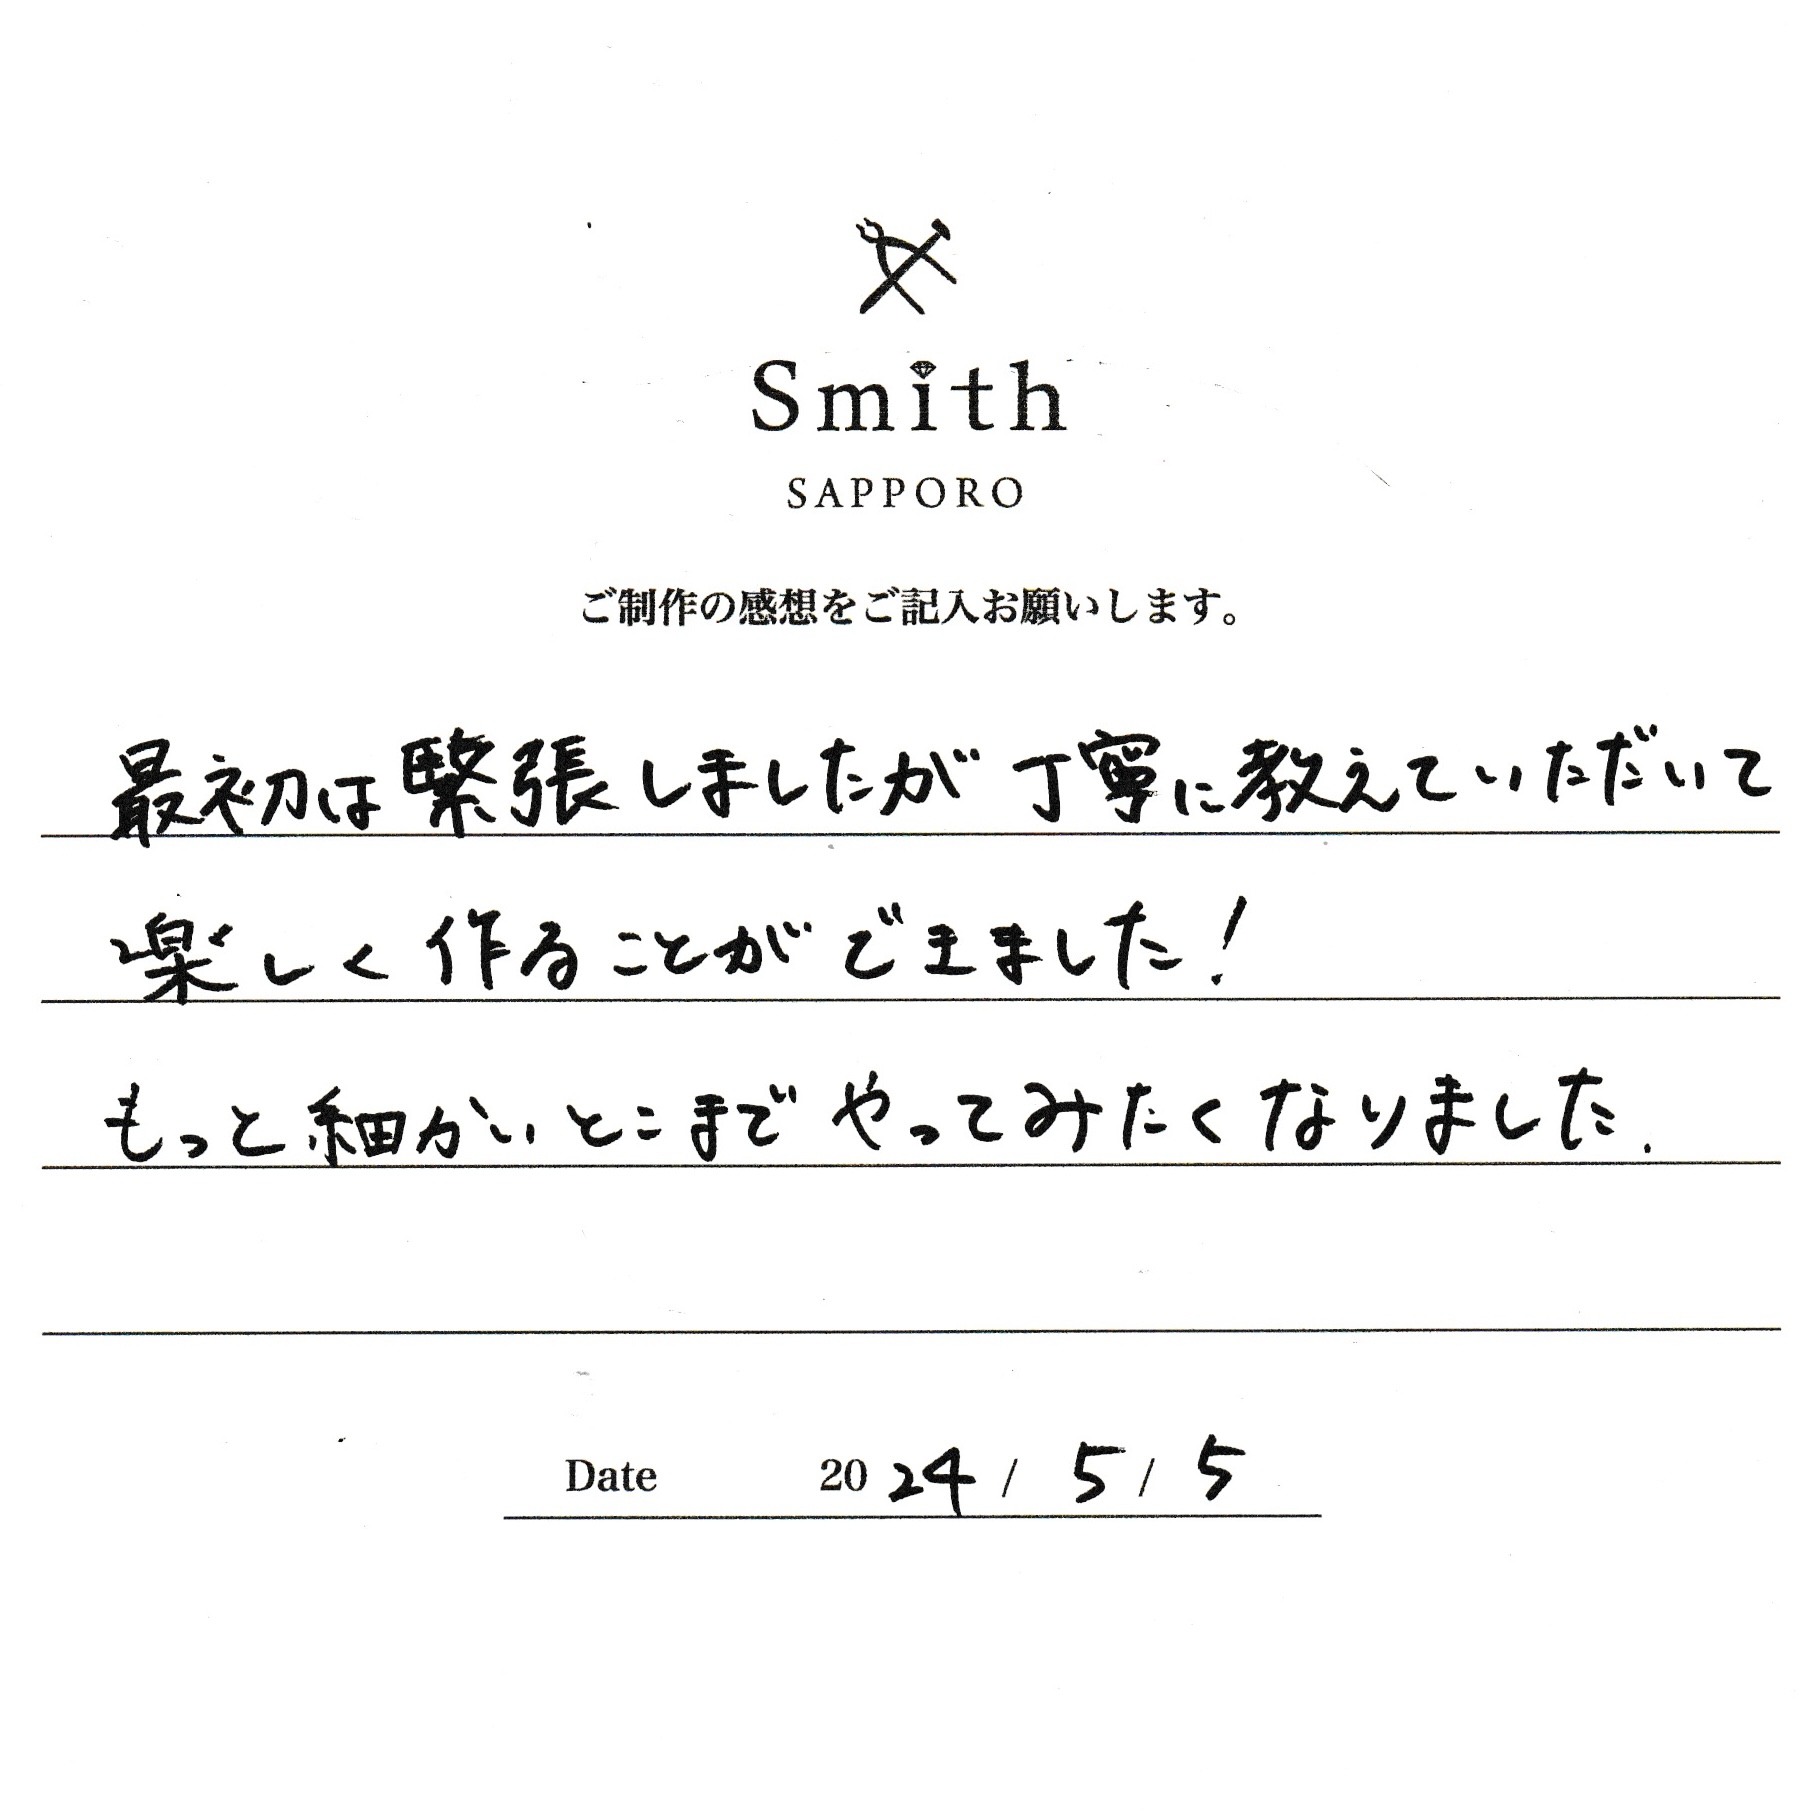 Smith
SAPPORO
ご制作の感想をご記入お願いします。
最初は緊張しましたが丁寧に教えていただいて
楽しく作ることができました!
もっと細かいとこまでやってみたくなりました.
Date 2024/5/5